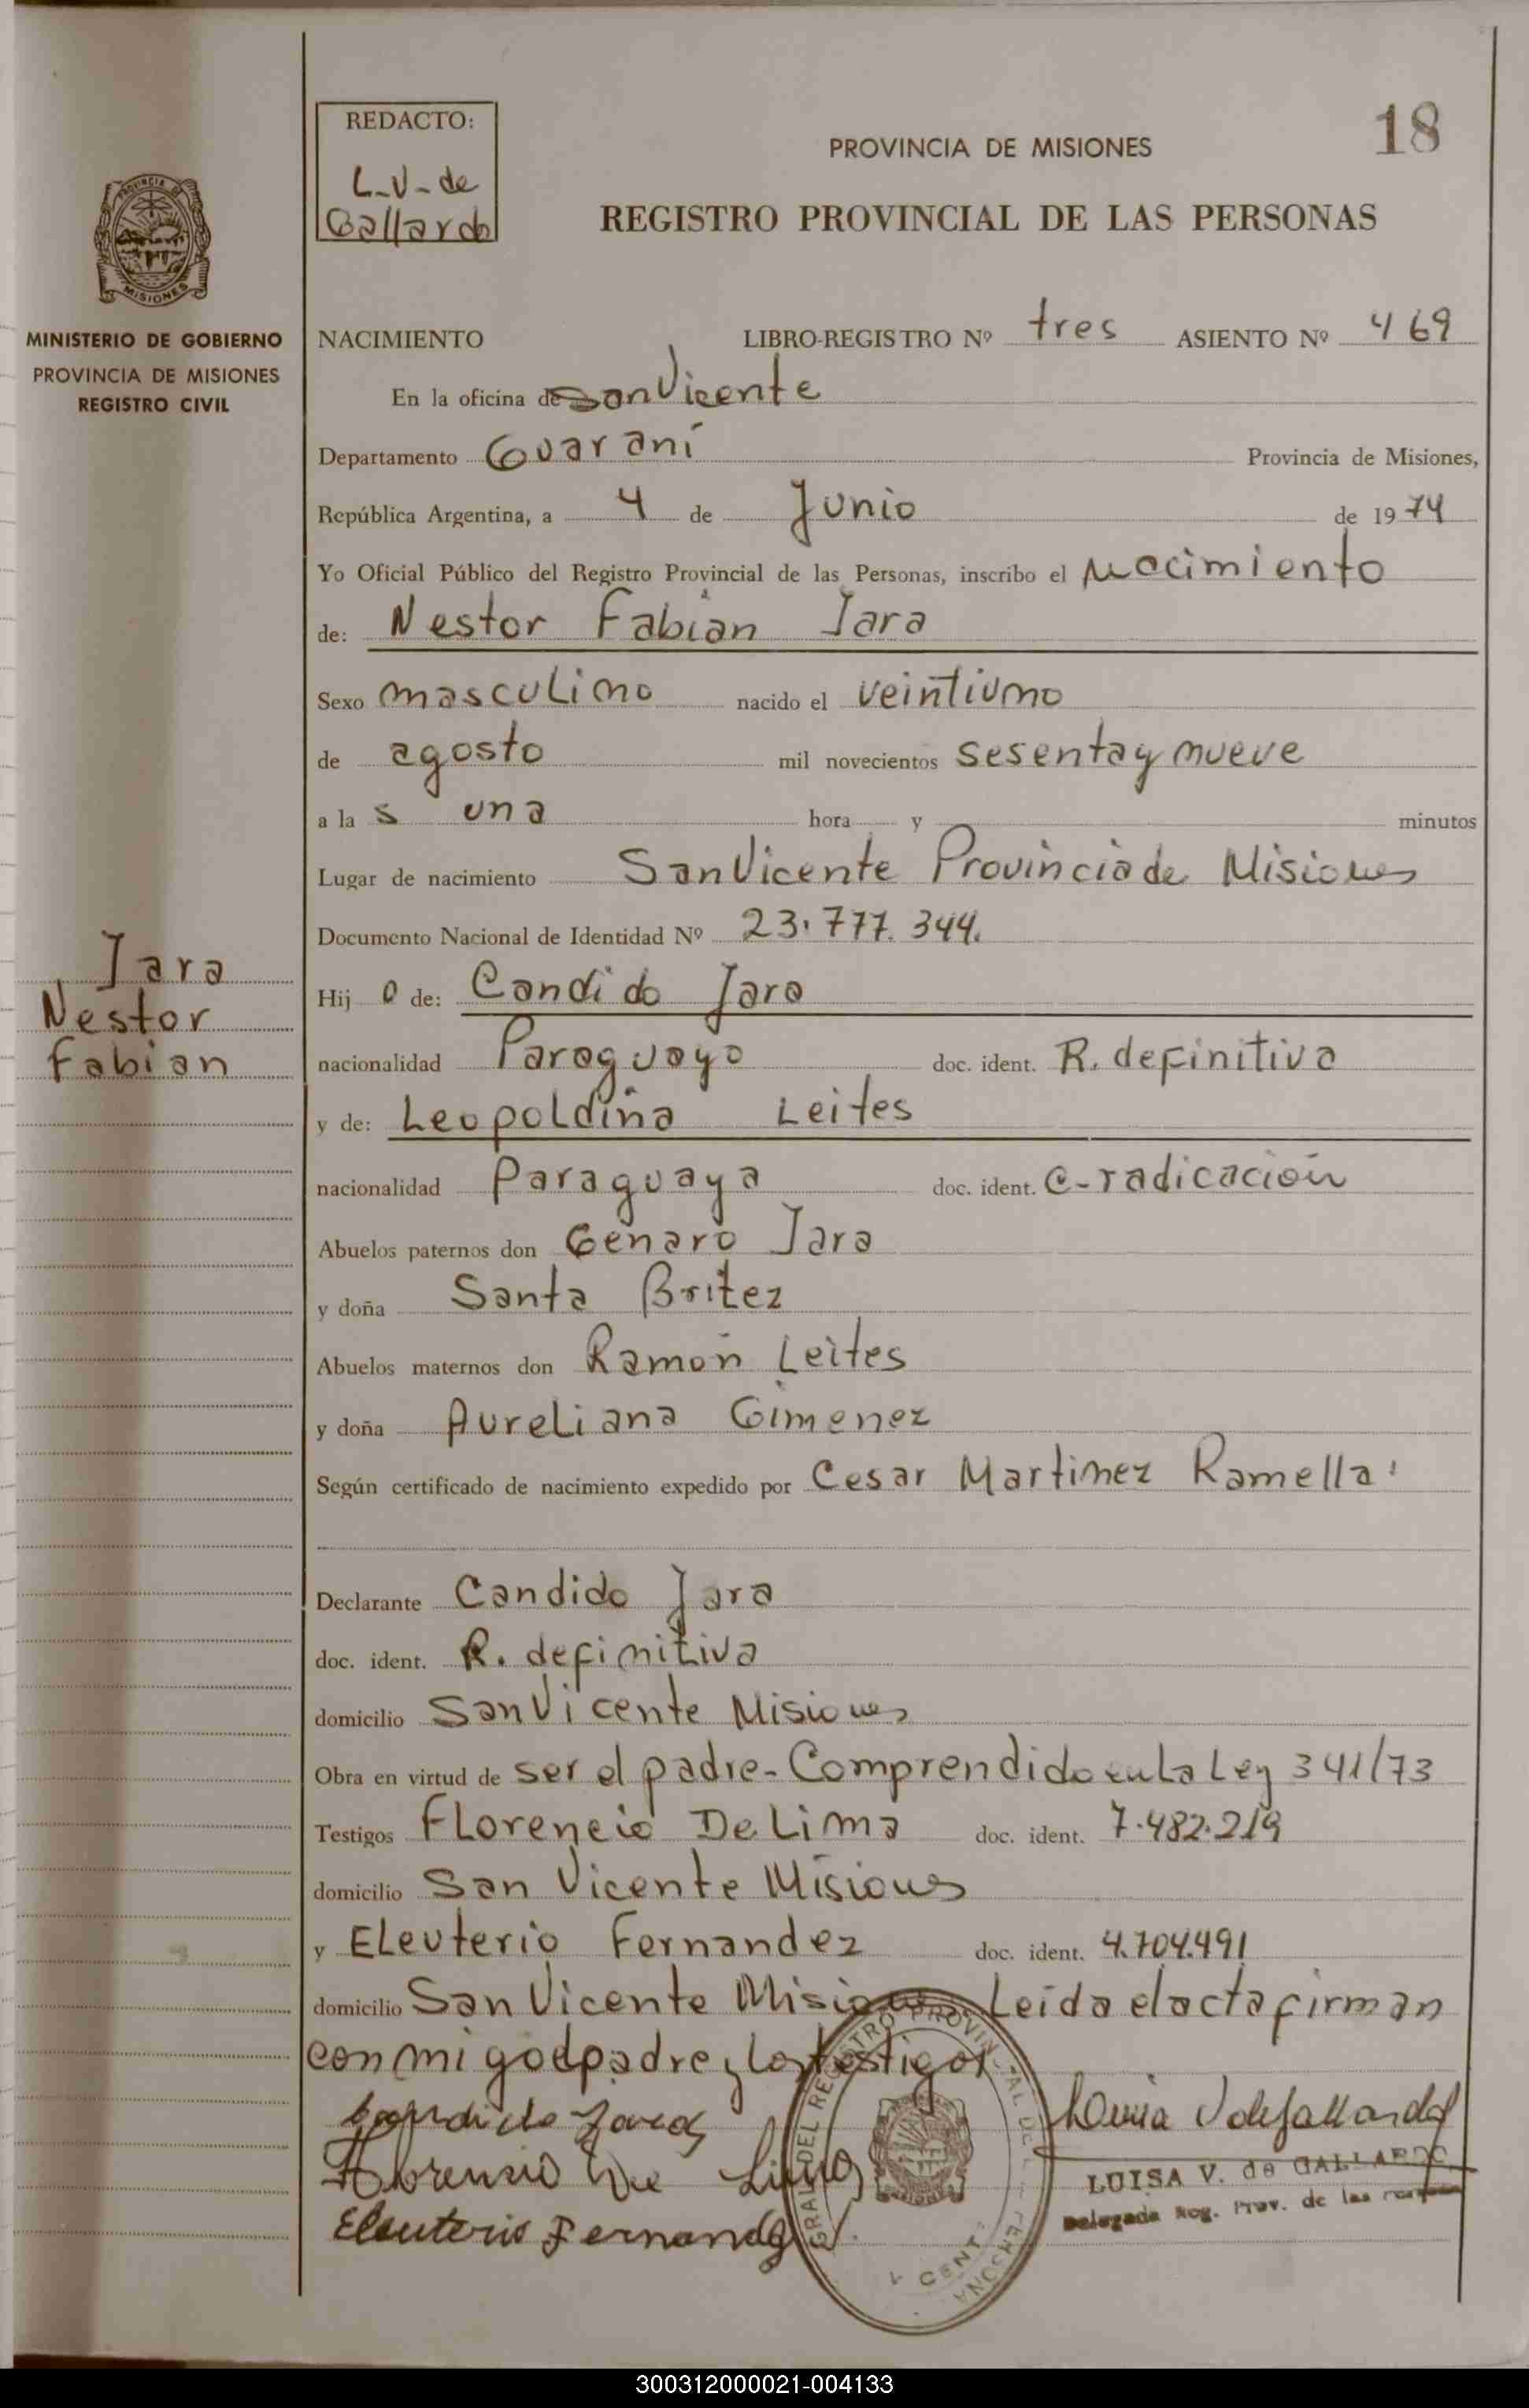 REDACTO:
L-V-de
Gallardo
PROVINCIA DE MISIONES
18
REGISTRO PROVINCIAL DE LAS PERSONAS
PROVINCIA DE
MISIONES
MINISTERIO DE GOBIERNO
PROVINCIA DE MISIONES
REGISTRO CIVIL
NACIMIENTO LIBRO-REGISTRO Nº tres ASIENTO Nº 469
En la oficina de San Vicente
Departamento Guaraní Provincia de Misiones,
República Argentina, a 4 de Junio de 1974
Yo Oficial Público del Registro Provincial de las Personas, inscribo el Nacimiento
de: Nestor Fabian Jara
Sexo masculino nacido el veintiuno
de agosto mil novecientos sesenta y nueve
a la s una hora y minutos
Lugar de nacimiento San Vicente Provincia de Misiones
Documento Nacional de Identidad Nº 23.777.344.
Jara
Nestor
Fabian
Hij o de: Candido Jara
nacionalidad Paraguayo doc. ident. R. definitiva
y de: Leopoldina Leites
nacionalidad Paraguaya doc. ident. C-radicación
Abuelos paternos don Genaro Jara
y doña Santa Britez
Abuelos maternos don Ramón Leites
y doña Aureliana Gimenez
Según certificado de nacimiento expedido por Cesar Martinez Ramella
Declarante Candido Jara
doc. ident. R. definitiva
domicilio San Vicente Misiones
Obra en virtud de ser el padre-Comprendido en la Ley 341/73
Testigos Florencio De Lima doc. ident. 7.482.219
domicilio San Vicente Misiones
y Eleuterio Fernandez doc. ident. 4.704.491
domicilio San Vicente Misiones Leida el acta firman
conmigo el padre y los testigos
Candido Jara
Florencio De Lima
Eleuterio Fernandez
Luisa V de Gallardo
LUISA V. de GALLARDO
Delegada Reg. Prov. de las
GRAL DEL REGISTRO PROVINCIAL DE
300312000021-004133